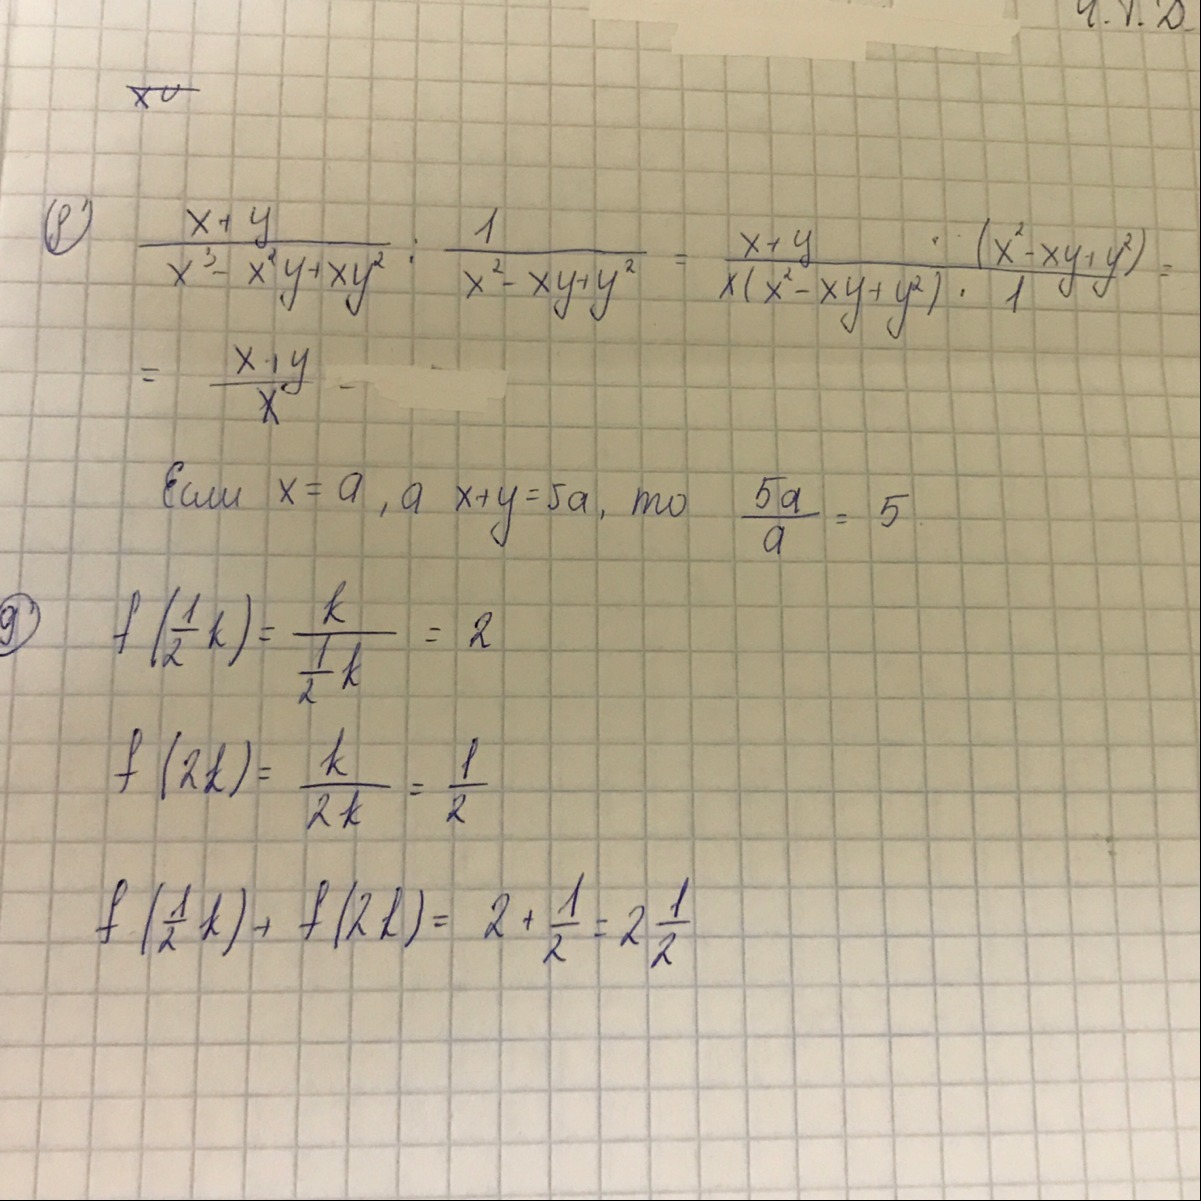 Ч.Т.Д.
xy
8) \frac{x+y}{x^3-x^2y+xy^2} : \frac{1}{x^2-xy+y^2} = \frac{x+y · (x^2-xy+y^2)}{x(x^2-xy+y^2) · 1} =
= \frac{x+y}{x} -
Если x=a, а x+y=5a, то \frac{5a}{a} = 5
9) f(\frac{1}{2}k) = \frac{k}{\frac{1}{2}k} = 2
f(2k) = \frac{k}{2k} = \frac{1}{2}
f(\frac{1}{2}k) + f(2k) = 2 + \frac{1}{2} = 2\frac{1}{2}